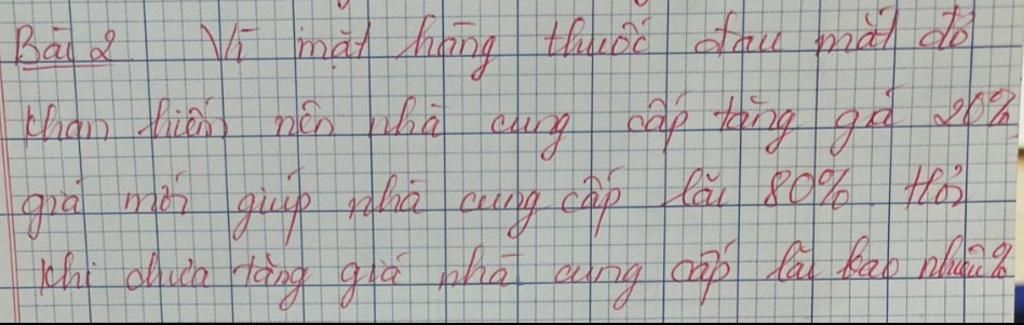 Bài 2 Vì mặt hàng thuốc đau mắt đỏ
khan hiếm nên nhà cung cấp tăng giá 20%
giá mới giúp nhà cung cấp lãi 80%. Hỏi
khi chưa tăng giá nhà cung cấp lãi bao nhiêu%